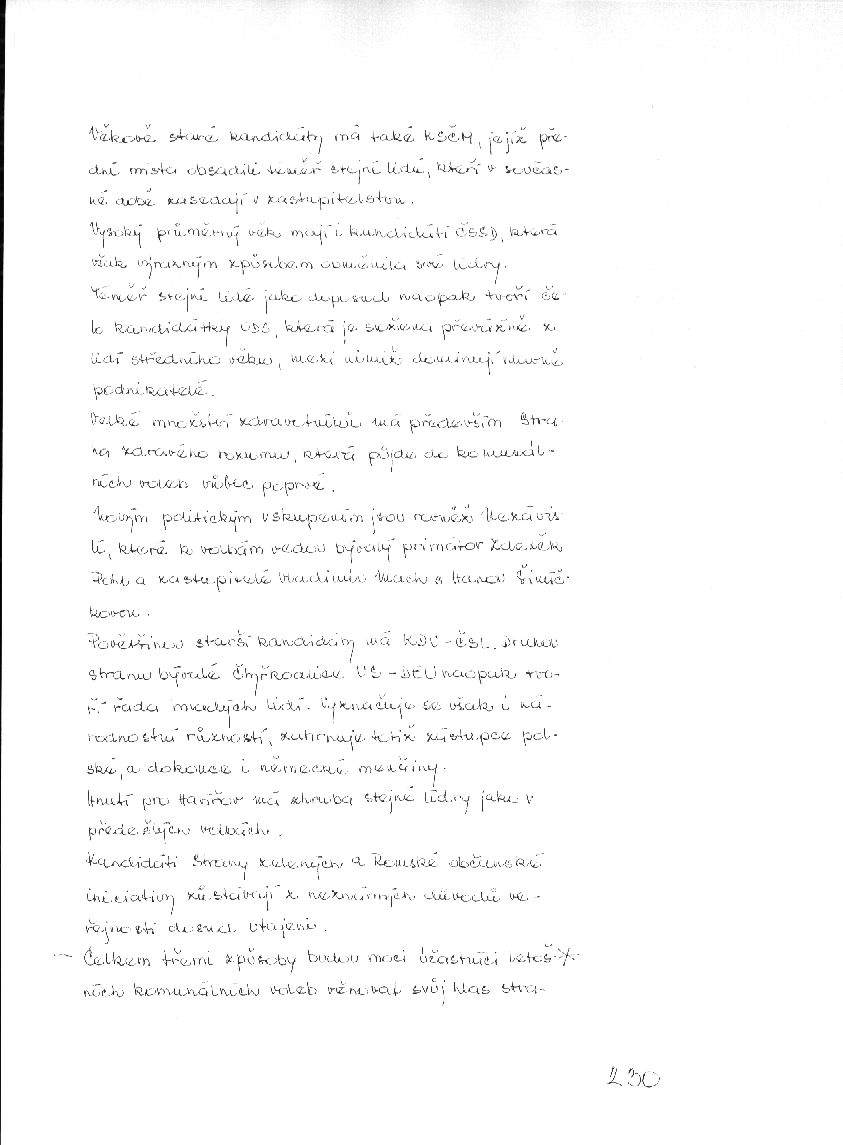 Věkově staré kandidáty má také KSČM, jejíž pře-
dní místa obsadili téměř stejní lidé, kteří v součas-
né době zasedají v zastupitelstvu.
Vysoký průměrný věk mají i kandidáti ČSSD, která
však výrazným způsobem obměnila své lídry.
Téměř stejní lidé jako doposud naopak tvoří če-
lo kandidátky ODS, která je složena převážně z
lidí středního věku, mezi nimiž dominují hlavně
podnikatelé.
Velké množství zdravotníků má především Stra-
na zdravého rozumu, která půjde do komunál-
ních voleb vůbec poprvé.
Novým politickým uskupením jsou rovněž Nezávis-
lí, které k volbám vedou bývalý primátor Zdeněk
Pohl a zastupitelé Vladimír Mach a Hana Šimíč-
kovou.
Povětšinou starší kandidáty má KDU-ČSL. Druhou
stranu bývalé Čtyřkoalice US-DEU naopak tvo-
ří řada mladých lidí. Vyznačuje se však i ná-
rodnostní různosti, zahrnuje totiž zástupce pol-
ské, a dokonce i německé menšiny.
Hnutí pro Havířov má zhruba stejné lídry jako v
předešlých volbách.
Kandidáti Strany zelených a Romské občanské
iniciativy zůstávají z neznámých důvodů ve-
řejnosti dosud utajeni.
Celkem třemi způsoby budou moci účastníci letoš-
ních komunálních voleb věnovat svůj hlas stra-
230